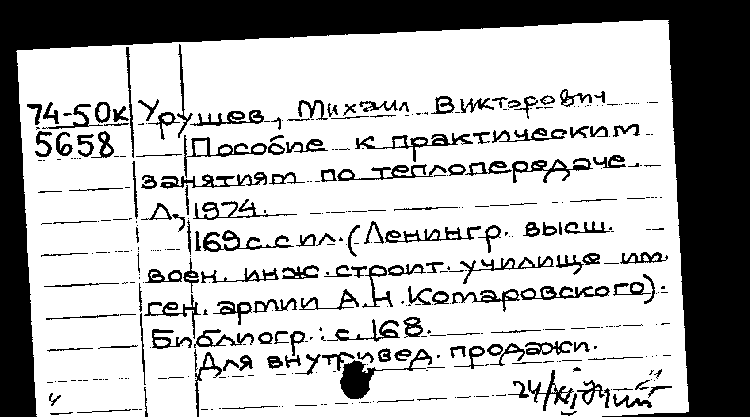 74-50к Урушев, Михаил Викторович
5658 Пособие к практическим
занятиям по теплопередаче.
Л., 1974.
169 с. с ил. (Ленингр. высш.
воен. инж. строит. училище им.
ген. армии А.Н. Комаровского).
Библиогр.: с. 168.
Для внутривед. продажи.
24/XII